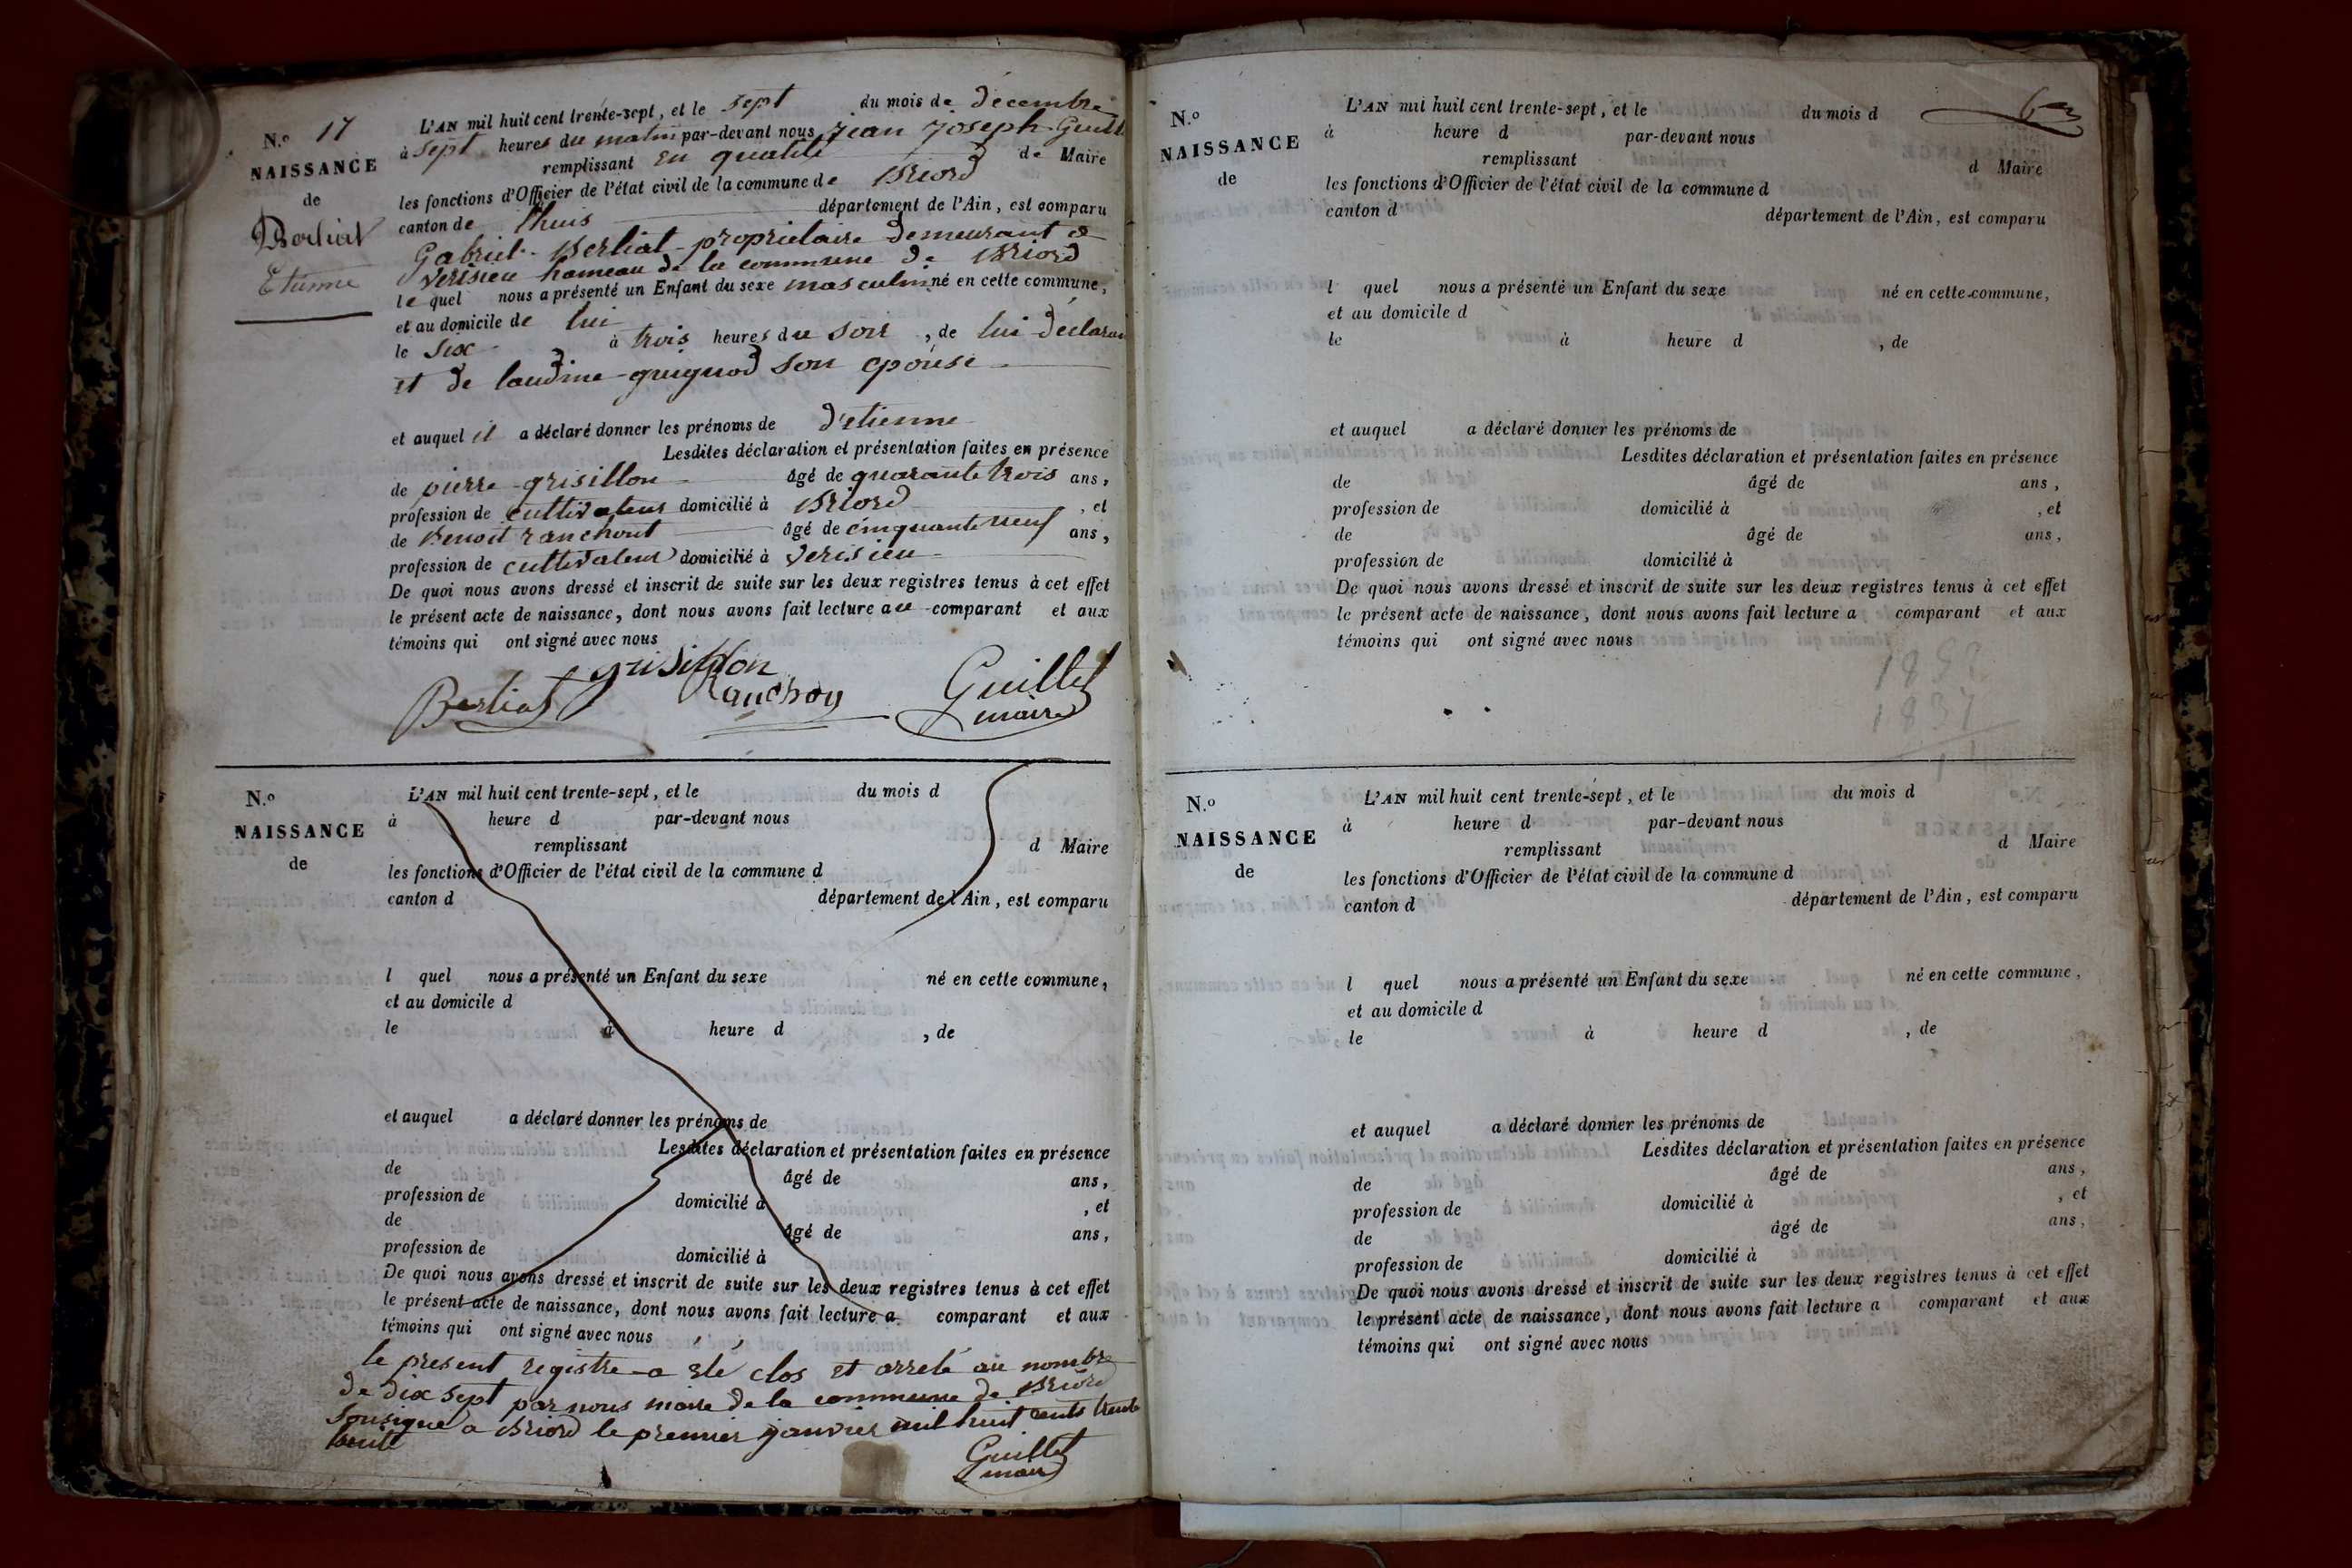 N.o 17
NAISSANCE
de
Berliat
Etienne
L'AN mil huit cent trente-sept, et le sept du mois de décembre
à sept heures du matin par-devant nous jean joseph Guill
remplissant en qualité de Maire
les fonctions d'Officier de l'état civil de la commune de Briord
canton de lhuis département de l'Ain, est comparu
Gabriel Berliat proprietaire demeurant a
verisieu hameau de la commune de Briord
le quel nous a présenté un Enfant du sexe masculin né en cette commune,
et au domicile de lui
le six à trois heures du soir, de lui déclaran
et de laudine guignod son epouse
et auquel il a déclaré donner les prénoms de d'etienne
Lesdites déclaration et présentation faites en présence
de pierre grisillon âgé de quarante trois ans,
profession de cultivateur domicilié à Briord, et
de Benoit ranchout âgé de cinquante neuf ans,
profession de cultivateur domicilié à verisieu
De quoi nous avons dressé et inscrit de suite sur les deux registres tenus à cet effet
le présent acte de naissance, dont nous avons fait lecture au comparant et aux
témoins qui ont signé avec nous
grisillon
Berliat Ranchou Guillet
maire
N.o
NAISSANCE
de
L'AN mil huit cent trente-sept, et le du mois d
à heure d par-devant nous
remplissant d Maire
les fonctions d'Officier de l'état civil de la commune d
canton d département de l'Ain, est comparu
l quel nous a présenté un Enfant du sexe né en cette commune,
et au domicile d
le à heure d , de
et auquel a déclaré donner les prénoms de
Lesdites déclaration et présentation faites en présence
de âgé de ans,
profession de domicilié à , et
de âgé de ans,
profession de domicilié à
De quoi nous avons dressé et inscrit de suite sur les deux registres tenus à cet effet
le présent acte de naissance, dont nous avons fait lecture a comparant et aux
témoins qui ont signé avec nous
le present registre a été clos et arreté au nombre
de dix sept par nous maire de la commune de Briord
sousigné a Briord le premier janvier mil huit cents trente
huit
Guillet
maire
N.o
NAISSANCE
de
L'AN mil huit cent trente-sept, et le du mois d
à heure d par-devant nous
remplissant d Maire
les fonctions d'Officier de l'état civil de la commune d
canton d département de l'Ain, est comparu
l quel nous a présenté un Enfant du sexe né en cette commune,
et au domicile d
le à heure d , de
et auquel a déclaré donner les prénoms de
Lesdites déclaration et présentation faites en présence
de âgé de ans,
profession de domicilié à , et
de âgé de ans,
profession de domicilié à
De quoi nous avons dressé et inscrit de suite sur les deux registres tenus à cet effet
le présent acte de naissance, dont nous avons fait lecture a comparant et aux
témoins qui ont signé avec nous
1837
N.o
NAISSANCE
de
L'AN mil huit cent trente-sept, et le du mois d
à heure d par-devant nous
remplissant d Maire
les fonctions d'Officier de l'état civil de la commune d
canton d département de l'Ain, est comparu
l quel nous a présenté un Enfant du sexe né en cette commune,
et au domicile d
le à heure d , de
et auquel a déclaré donner les prénoms de
Lesdites déclaration et présentation faites en présence
de âgé de ans,
profession de domicilié à , et
de âgé de ans,
profession de domicilié à
De quoi nous avons dressé et inscrit de suite sur les deux registres tenus à cet effet
le présent acte de naissance, dont nous avons fait lecture a comparant et aux
témoins qui ont signé avec nous